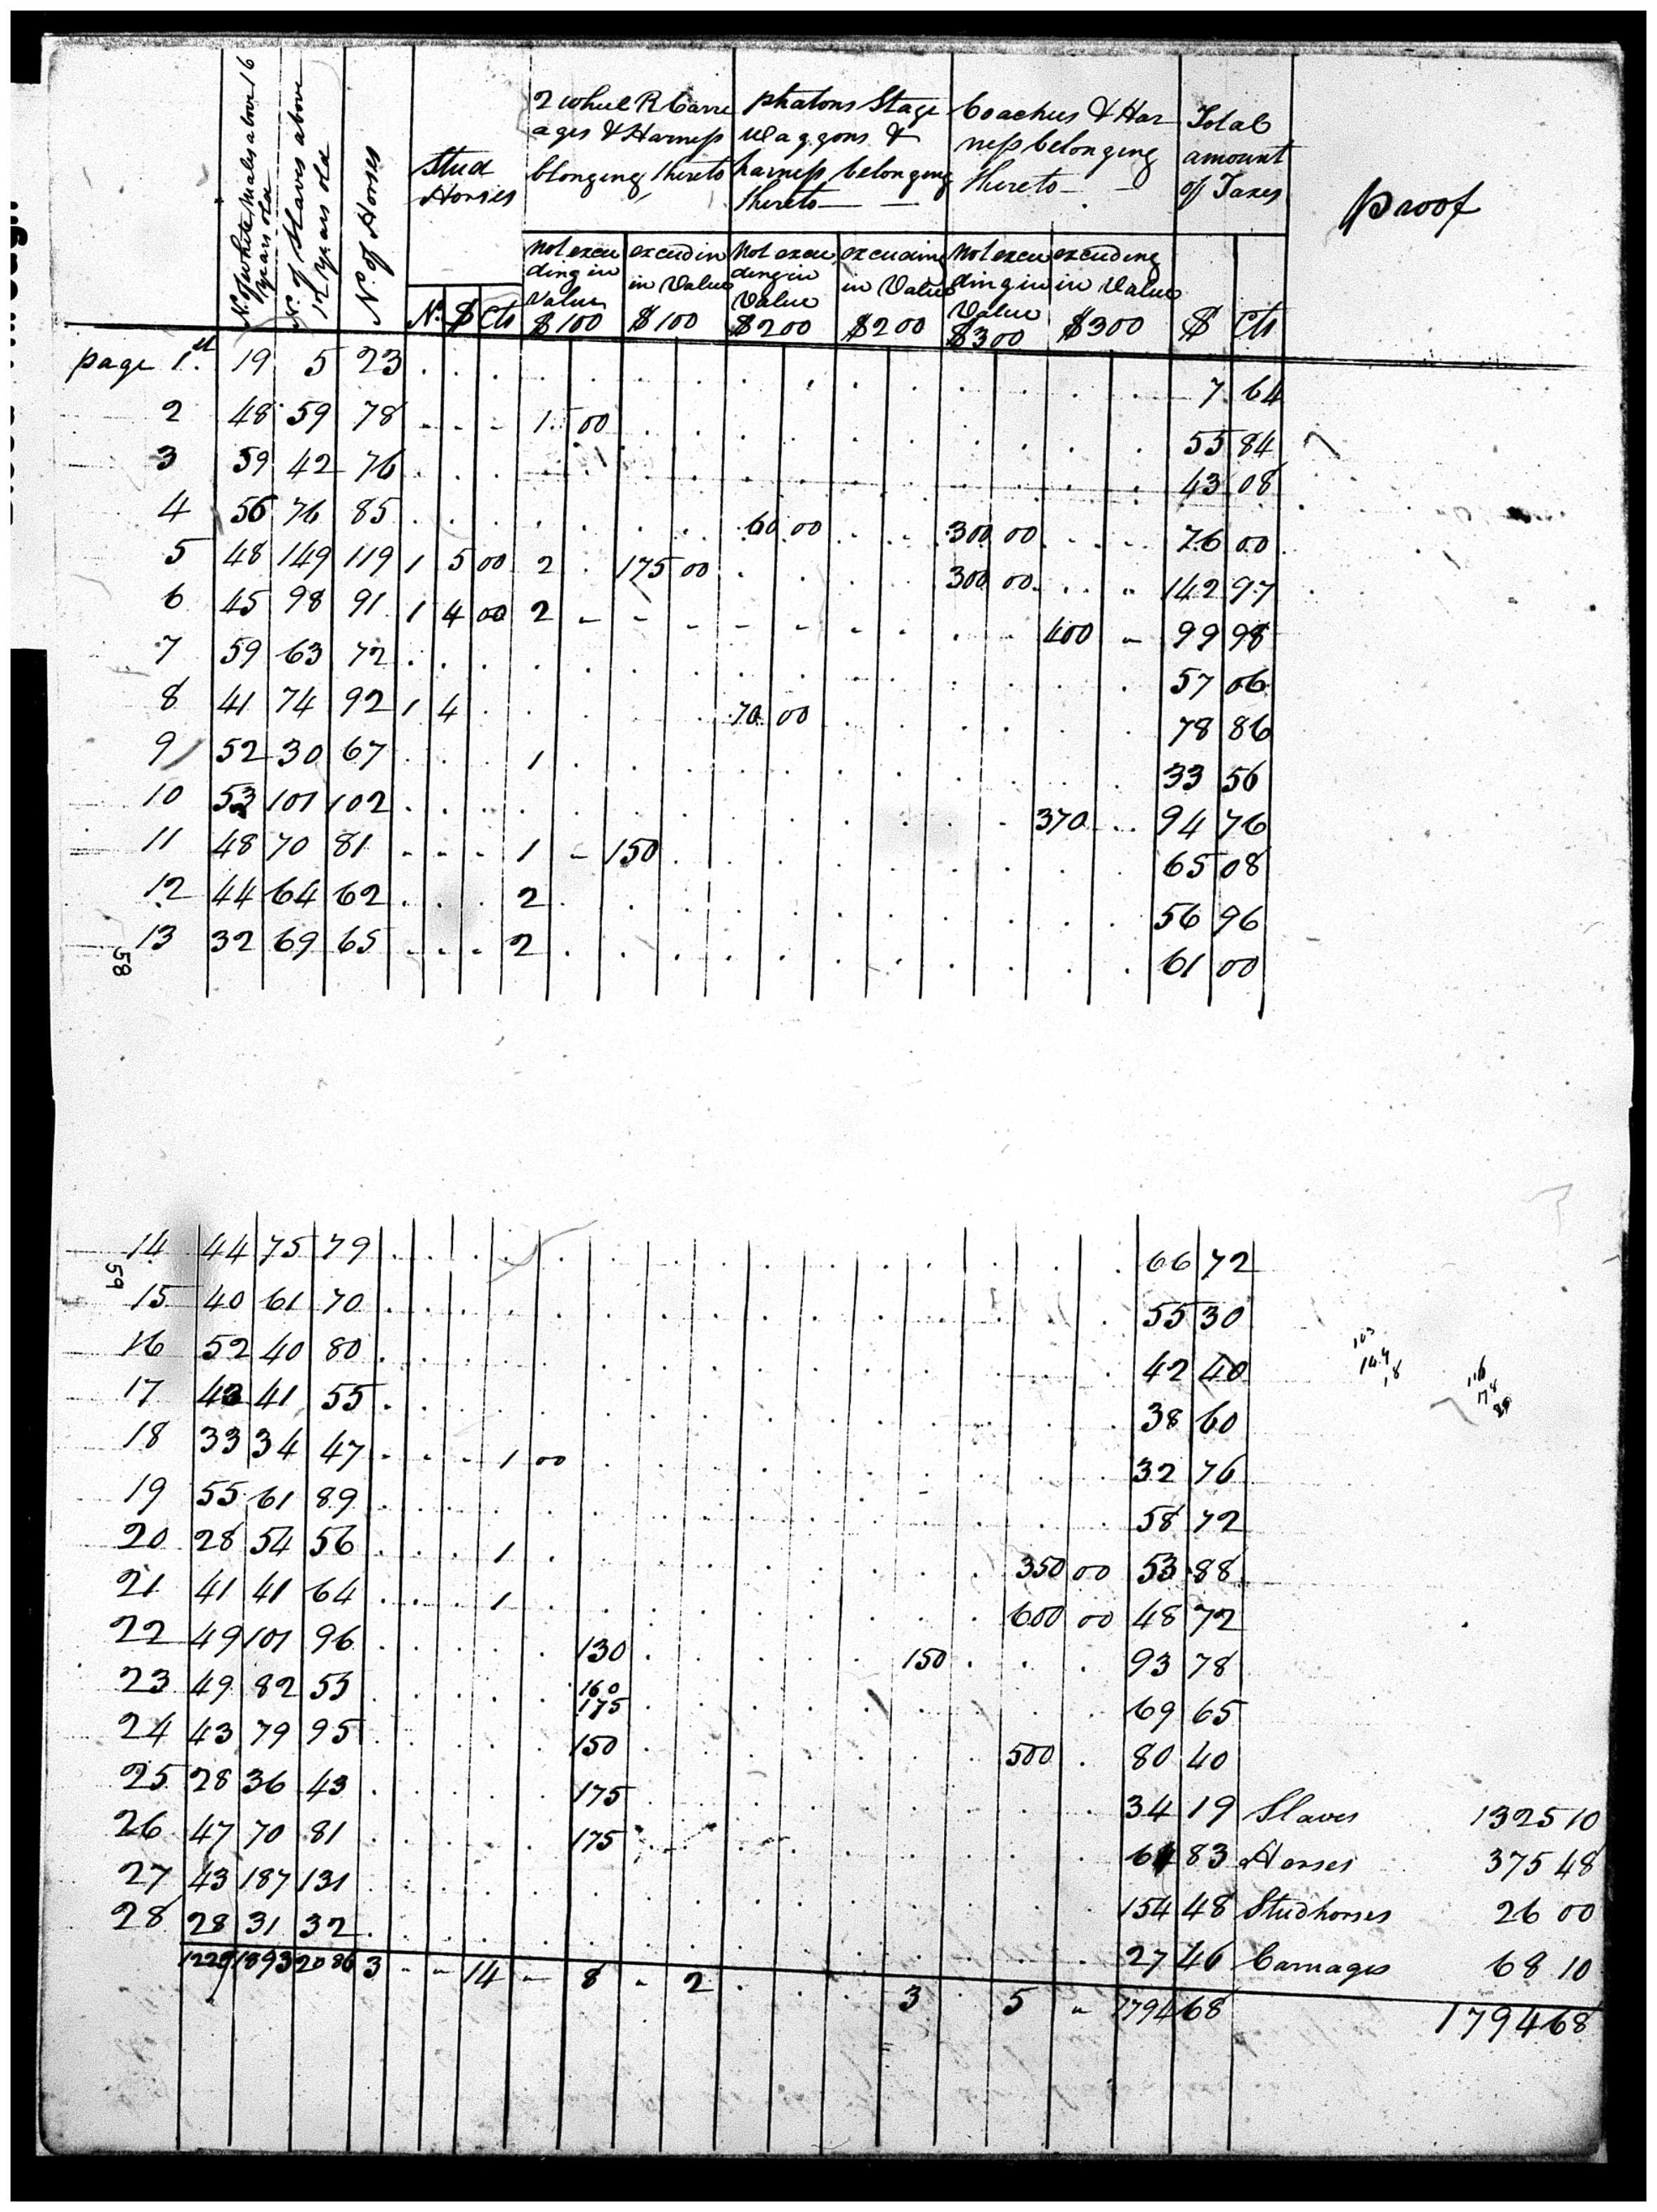 No. of white Males above 16 years old
No. of Slaves above 12 years old
No. of Horses
Stud Horses
2 wheel R Carri ages & Harness blonging thereto
phatons Stage Waggons & harness belonging thereto
Coaches & Har ness belonging thereto
Total amount of Taxes
proof
No. $ Cts
Not excee ding in Value $100
exceedin in Value $100
Not excee ding in Value $200
exceeding in Value $200
Not excee ding in Value $300
exceeding in Value $300
$ Cts
page 1st. 19 5 23 7 64
2 48 59 78 1 00 55 84
3 59 42 76 43 08
4 56 76 85 60 00 300 00 76 00
5 48 149 119 1 5 00 2 175 00 300 00 142 97
6 45 98 91 1 4 00 2 400 99 98
7 59 63 72 57 06
8 41 74 92 1 4 70 00 78 86
9 52 30 67 1 33 56
10 53 101 102 370 94 76
11 48 70 81 1 150 65 08
12 44 64 62 2 56 96
13 32 69 65 2 61 00
58
14 44 75 79 66 72
59
15 40 61 70 55 30
16 52 40 80 42 40
17 43 41 55 38 60
18 33 34 47 1 00 32 76
19 55 61 89 58 72
20 28 54 56 1 350 00 53 88
21 41 41 64 1 600 00 48 72
22 49 101 96 130 150 93 78
23 49 82 55 160 175 69 65
24 43 79 95 150 500 80 40
25 28 36 43 175 34 19 Slaves 1325 10
26 47 70 81 175 64 83 Horses 375 48
27 43 187 131 154 48 Studhorses 26 00
28 28 31 32 27 46 Carriages 68 10
1227 1893 2086 3 14 8 2 3 5 1794 68 1794 68